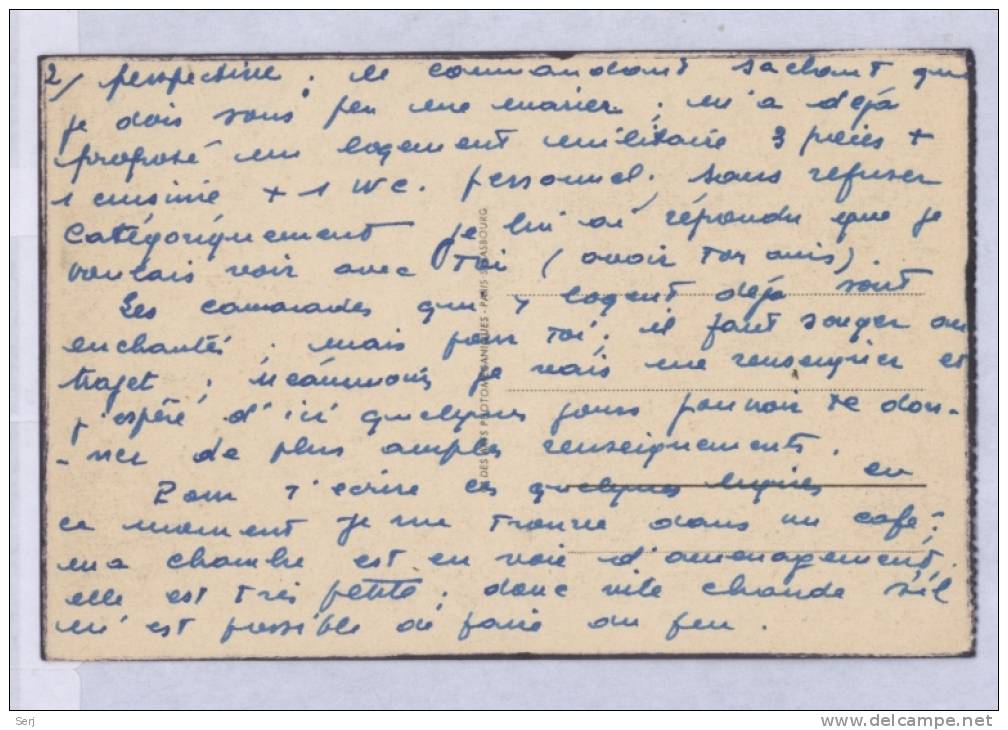 2/ perspective ; le commandant sachant que
je dois sous peu me marier ; m'a déjà
proposé un logement militaire 3 pièces +
1 cuisine + 1 WC. personnel ; sans refuser
catégoriquement je lui ai répondu que je
voulais voir avec Toi (avoir ton avis).
Les camarades qui y logent déjà sont
enchantés ; mais pour Toi, il faut songer au
trajet ; néanmoins je vais me renseigner et
j'espère d'ici quelques jours pouvoir te don-
-ner de plus amples renseignements.
Pour t'écrire ces quelques lignes en
ce moment je me trouve dans un café ;
ma chambre est en voie d'aménagement,
elle est très petite ; donc vite chaude s'il
m'est possible de faire du feu.
DES ARTS PHOTOMECANIQUES - PARIS-STRASBOURG
Serj
delcampe.net